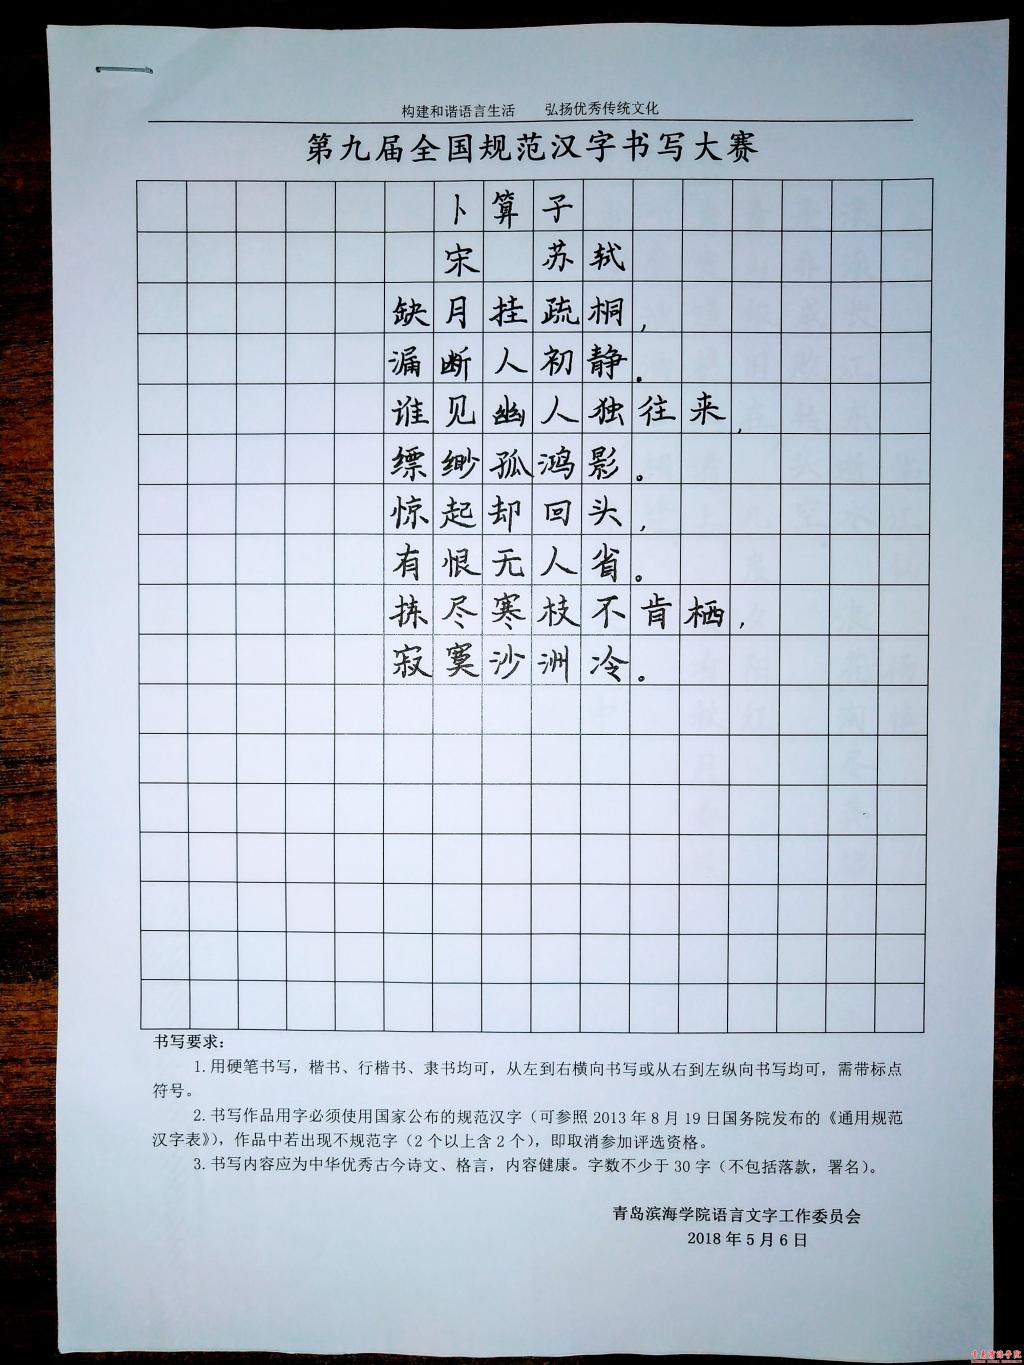 构建和谐语言生活 弘扬优秀传统文化
第九届全国规范汉字书写大赛
卜算子
宋 苏轼
缺月挂疏桐，
漏断人初静。
谁见幽人独往来，
缥缈孤鸿影。
惊起却回头，
有恨无人省。
拣尽寒枝不肯栖，
寂寞沙洲冷。
书写要求：
1. 用硬笔书写，楷书、行楷书、隶书均可，从左到右横向书写或从右到左纵向书写均可，需带标点
符号。
2. 书写作品用字必须使用国家公布的规范汉字（可参照 2013 年 8 月 19 日国务院发布的《通用规范
汉字表》），作品中若出现不规范字（2 个以上含 2 个），即取消参加评选资格。
3. 书写内容应为中华优秀古今诗文、格言，内容健康。字数不少于 30 字（不包括落款，署名）。
青岛滨海学院语言文字工作委员会
2018 年 5 月 6 日
青岛滨海学院